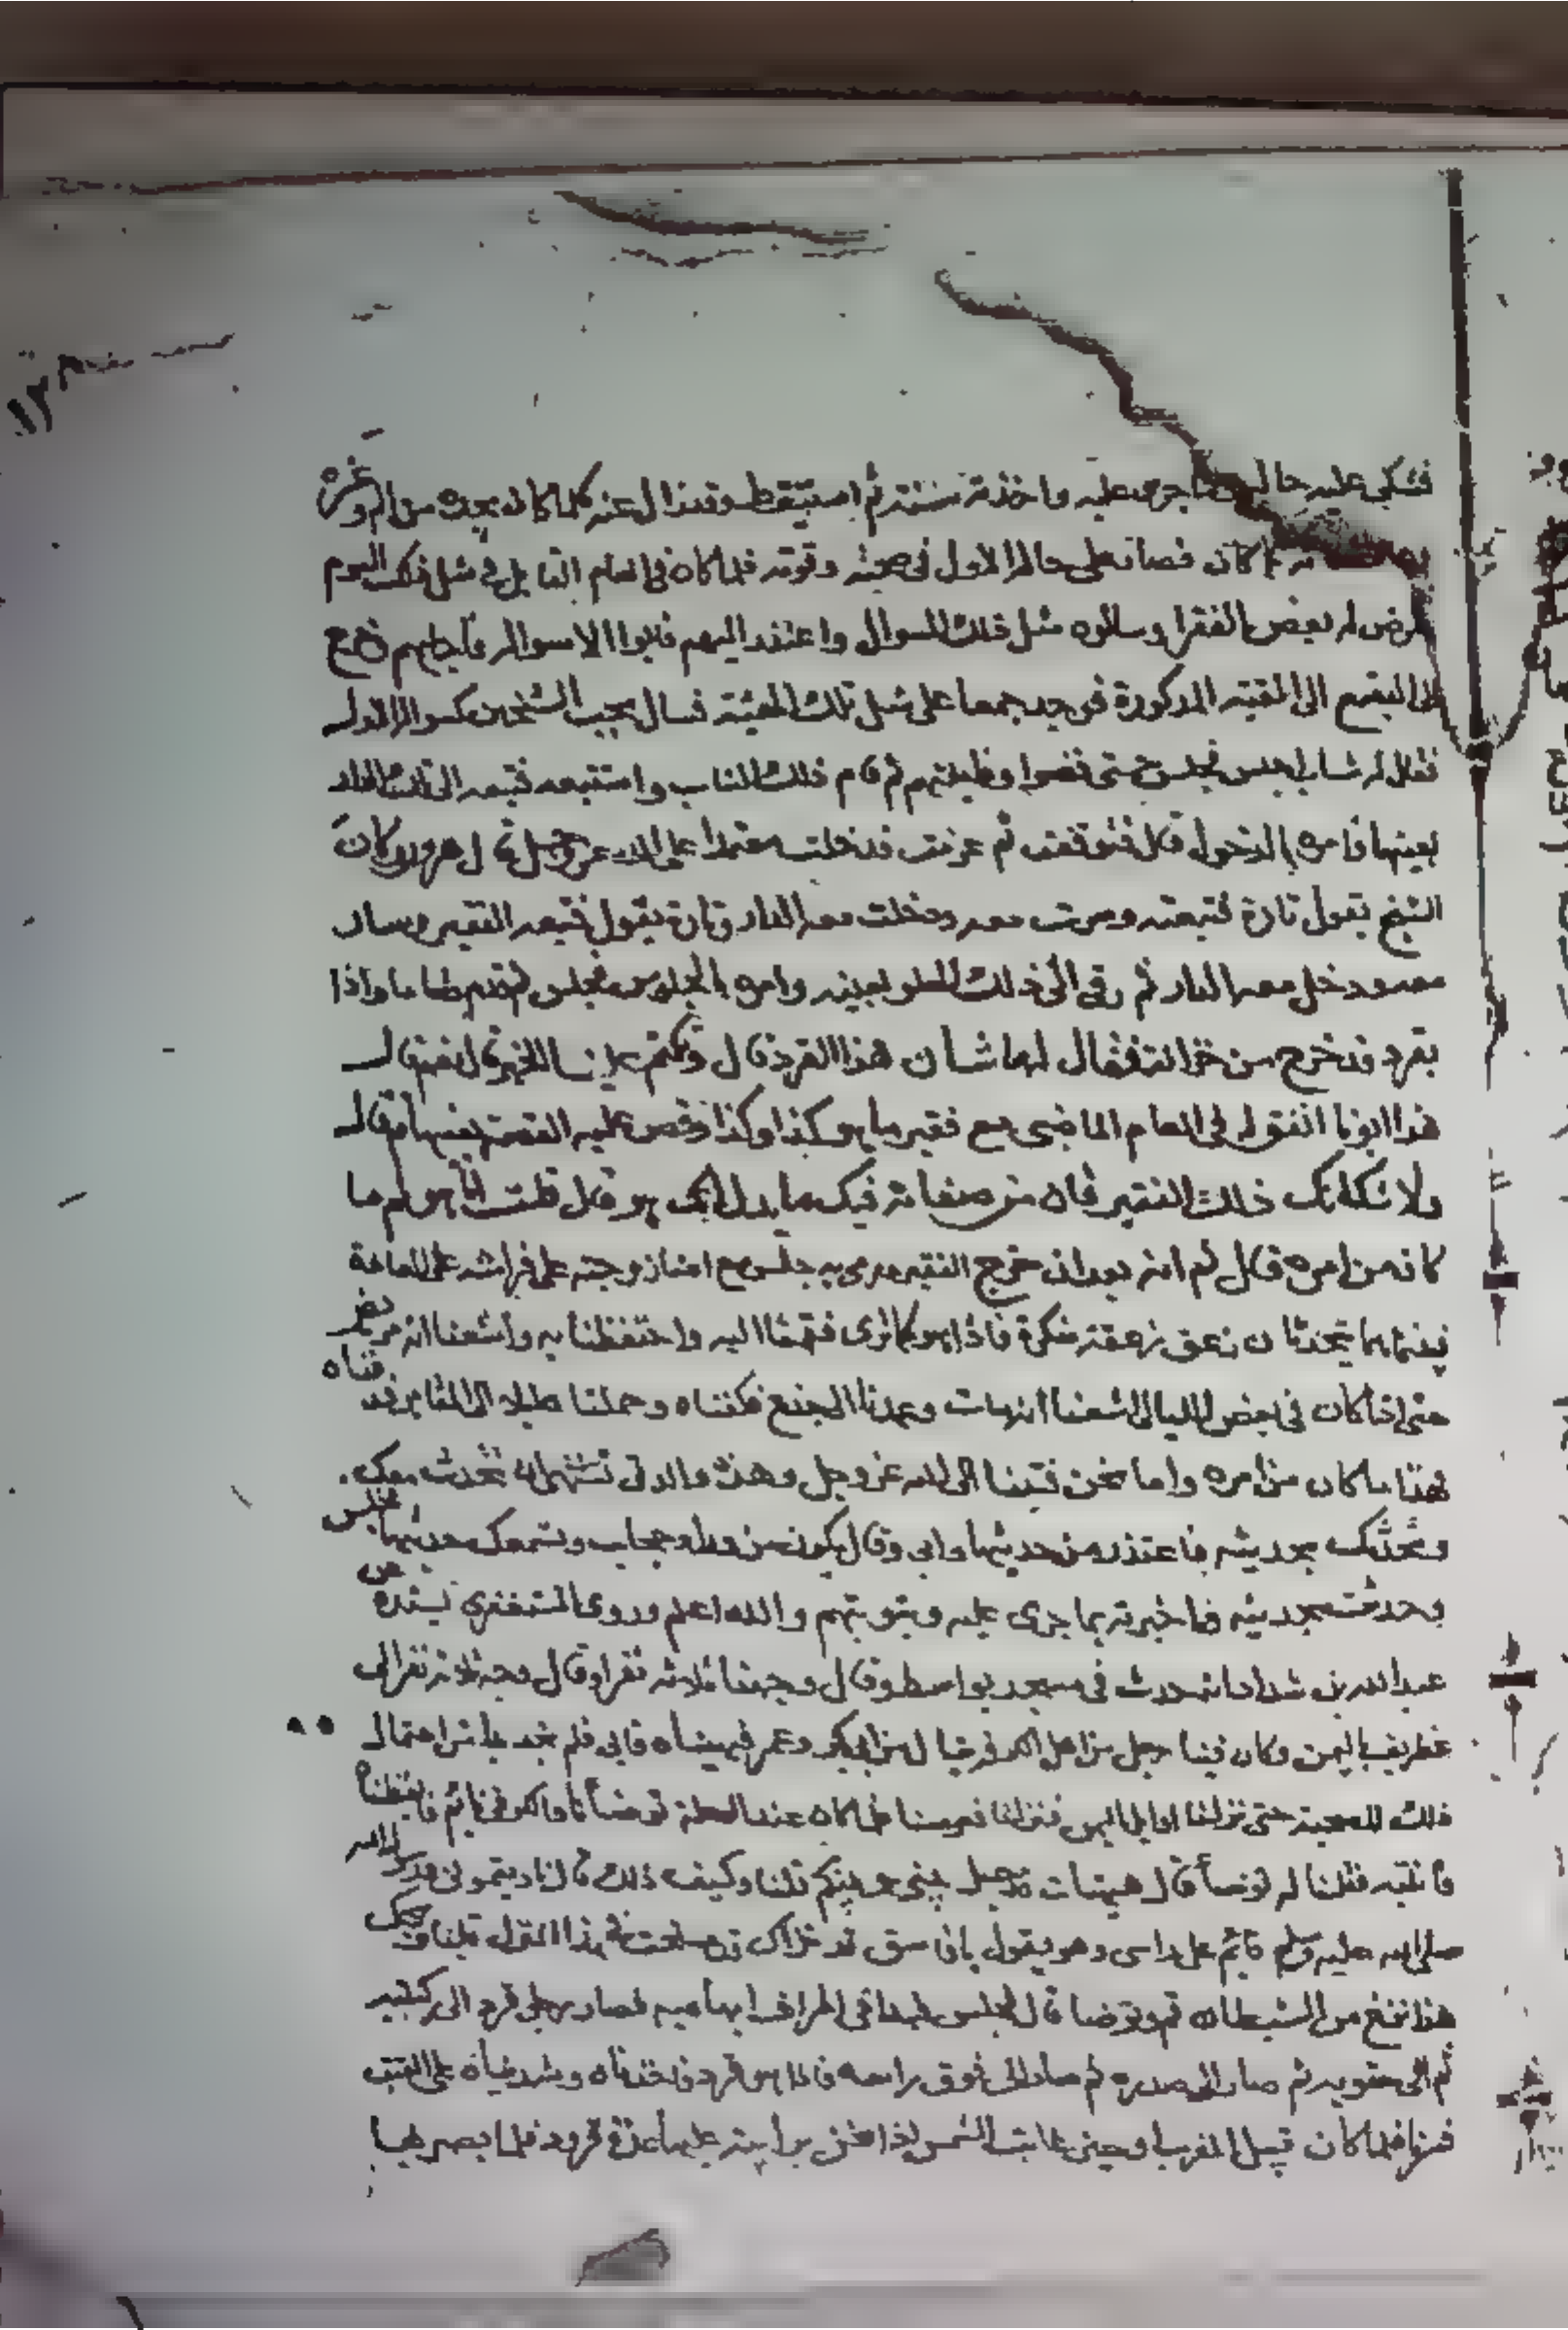 فشكى عليه حاله جرى عليه واخذته سنة ثم استيقظ وقد زال عنه كلما كان يجده من الم وغيره
كان فصار على حاله الاول في صحته وقوته فلما كان في العام القابل في مثل ذلك اليوم
عرض له بعض الفقرا وسالوه مثل ذلك السوال واعتذر اليهم فابوا الا سواله فاجابهم فخرج
الى البقيع الى القبة المذكورة فوجد جمعا على مثل تلك الهيئة فسال بحب الشيخين كسواله الاول
فقال له شاب اجلس فجلس حتى قضوا وظيفتهم ثم قام ذلك الشاب واستتبعه فتبعه الى تلك الدار
بعينها فامره بالدخول قال فتوقفت ثم عزمت فدخلت معتمدا على الله عز وجل قال هرون كان
الشيخ يقول تارة فتبعته وسرت معه ودخلت معه الدار وتارة يقول فتبعه الفقير وسار
معه ودخل معه الدار ثم رقى الى ذلك العلو بعينه وامره بالجلوس فجلس فقدم طعاما واذا
بقرد قد خرج من خزانة فقال له ما شان هذا القرد قال وتكتم علينا الخبر قال نعم قال
هذا ابونا اتفق له في العام الماضي مع فقير ما هو كذا وكذا وقص عليه القصة بعينها وقال
ولا نك انك ذلك الفقير فان من صفاته فيك ما يدل انك هو قال قلت انا هو ثم ما
كان من امره قال ثم انه بعد ان خرج الفقير ورمى به جلس مع امنا زوجته على فراشه على العادة
فبينما هما يتحدثان زعق زعقة منكرة فاذا هو كما ترى فقمنا اليه واحتفظنا به واشعنا انه مريض
حتى اذا كان في بعض الليالي اشعنا انه مات وعمدنا الى جذع فكفناه وحملنا طيلا الى المقابر فدفناه
فهذا ما كان من امره واما نحن فتبنا الى الله عز وجل وهذه والدتي تشتهي ان تحدث معك
وتحدثك بحديثه فاعتذر من حديثها وابى وقال يكون من وراء حجاب وتسمعك حديثها فجلس
وحدثت بحديثه فاخبرته بما جرى عليه وبتوبتهم والله اعلم وروى المستغفري بسنده عن
عبد الله بن شداد انه حدث في مسجد بواسط وقال وجهنا ثلاثة نفر او قال وجه ثلاثة نفر الى
غطريف باليمن وكان فينا رجل من اهل الكوفة ينال من ابي بكر وعمر فنهيناه فابى فلم نجد بدا من احتمال
ذلك للصحبة حتى نزلنا اوايل اليمن فنزلنا فعرسنا فلما كان عند الصلاة توضأنا والكوفي نائم فايقظناه
فانتبه فقلنا له توضأ قال هيهات حيل بيني وبينكم قلنا وكيف ذلك قال نا ديتموني ورسول الله
صلى الله عليه وسلم قائم على راسي وهو يقول يا فاسق قد خزاك الله هذا القول قلنا ويحك
هذا نزغ من الشيطان قم وتوضا قال فجلس فبدا في اطرافه ابهاميه فصار رجلي قرد الى ركبتيه
ثم الى حقويه ثم صار الى صدره ثم صار الى فوق راسه فاذا هو قرد فاخذناه وشددناه على القتب
فسرنا فلما كان قبل المغرب وحين غابت الشمس اذا نحن برابية عليها عدة قرود فلما بصر بها